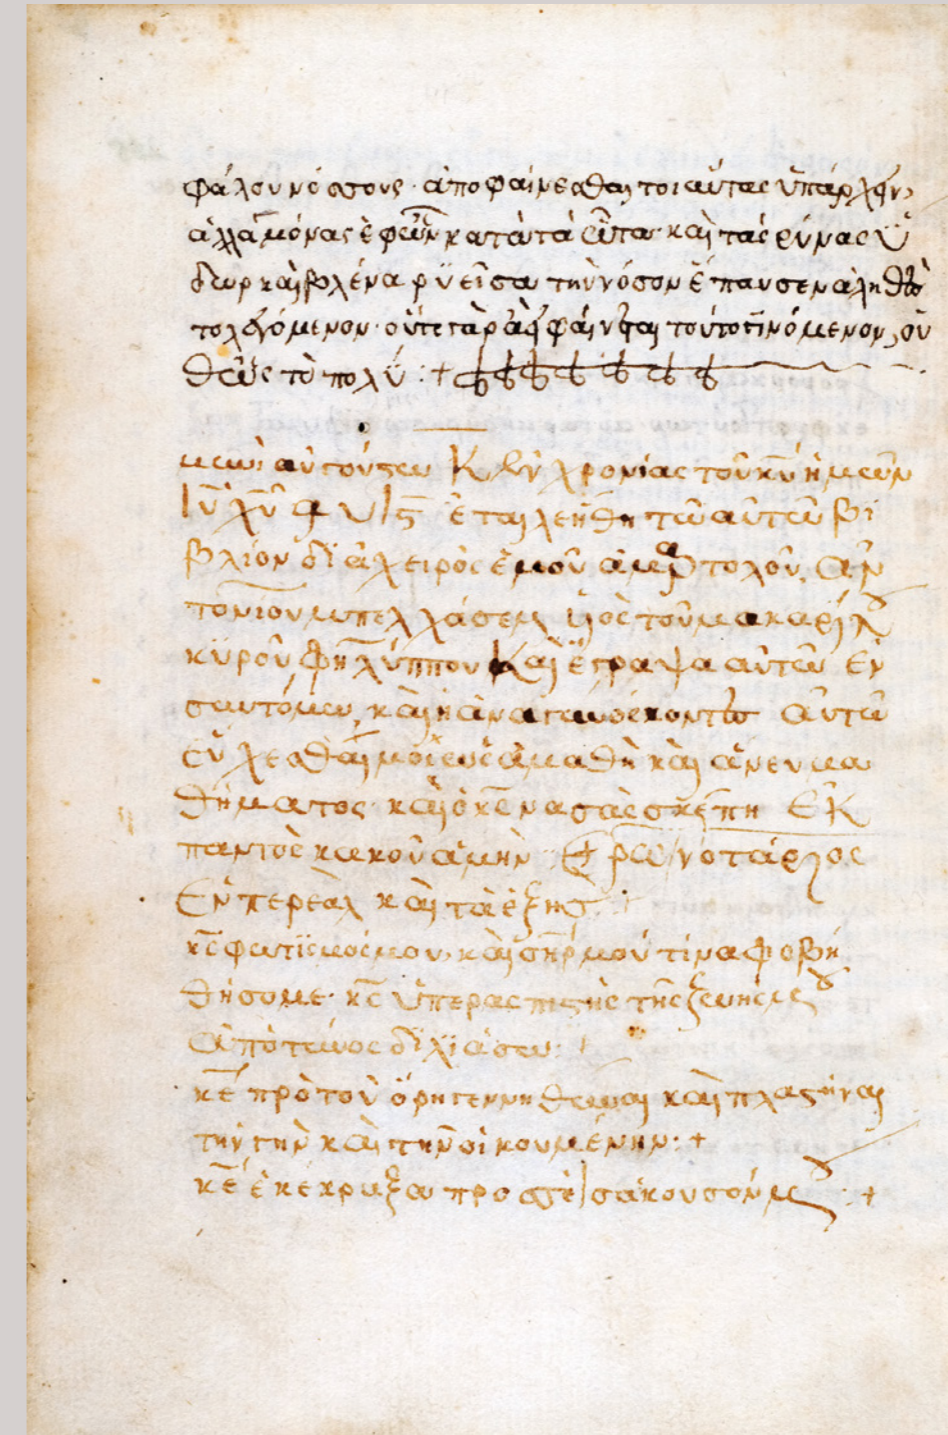 φάλου νόσους · ἀποφαίνεσθαι τοιαύτας ὑπάρχειν,
ἀλλὰ μόνας ἐφ κατὰ τὰ ὦτα· καὶ τὰς ρύνας ὕ
δωρ καὶ βλένα ρυεῖσα τὴν νόσον ἔπαυσεν ἀληθὲς
τολεγόμενον· οὔτε γὰρ ἀεὶ φαίνεται τοῦτο γινόμενον, οὐ
θ ὡς τὸ πολύ :+
αὐγούστω Κ χρονίας τοῦ κυ ἡμεῶν
ιυ χυ α φ ἐταιλειήθη τῶ αὐτῶ βι
βλίον διὰ χειρὸς ἐμοῦ ἁμρτολοῦ, ἀν
τονίου υἱὸς τοῦ μακαρί
κυροῦ φηλύππου Καὶ ἔγραψα αὐτῶ ἐν
συντόμω, καὶ αὐτῶ
εὔχεσθαί μοι ἀμαθῆ καὶ ἄνευ μα
θήματος· καὶ ὁ κς να σᾶς σκέπη ἐκ
παντὸς κακοῦ ἀμὴν νοτάριος
ἐμπερεὰλ καὶ τὰ ἐξῆς :
κς φωτισμός μου, καὶ σηρ μου τίνα φοβη
θήσομε· κς ὑπερασπιστὴς τῆς ζωῆς μου
ἀπὸ τίνος διλιάσω: +
κε πρὸ τοῦ ὄρη γεννηθῶναι καὶ πλαστῆναι
τὴν γὴν καὶ τὴν οἰκουμένην: +
κε ἐκέκραξα πρὸς σὲ εἰσάκουσόν μου :+